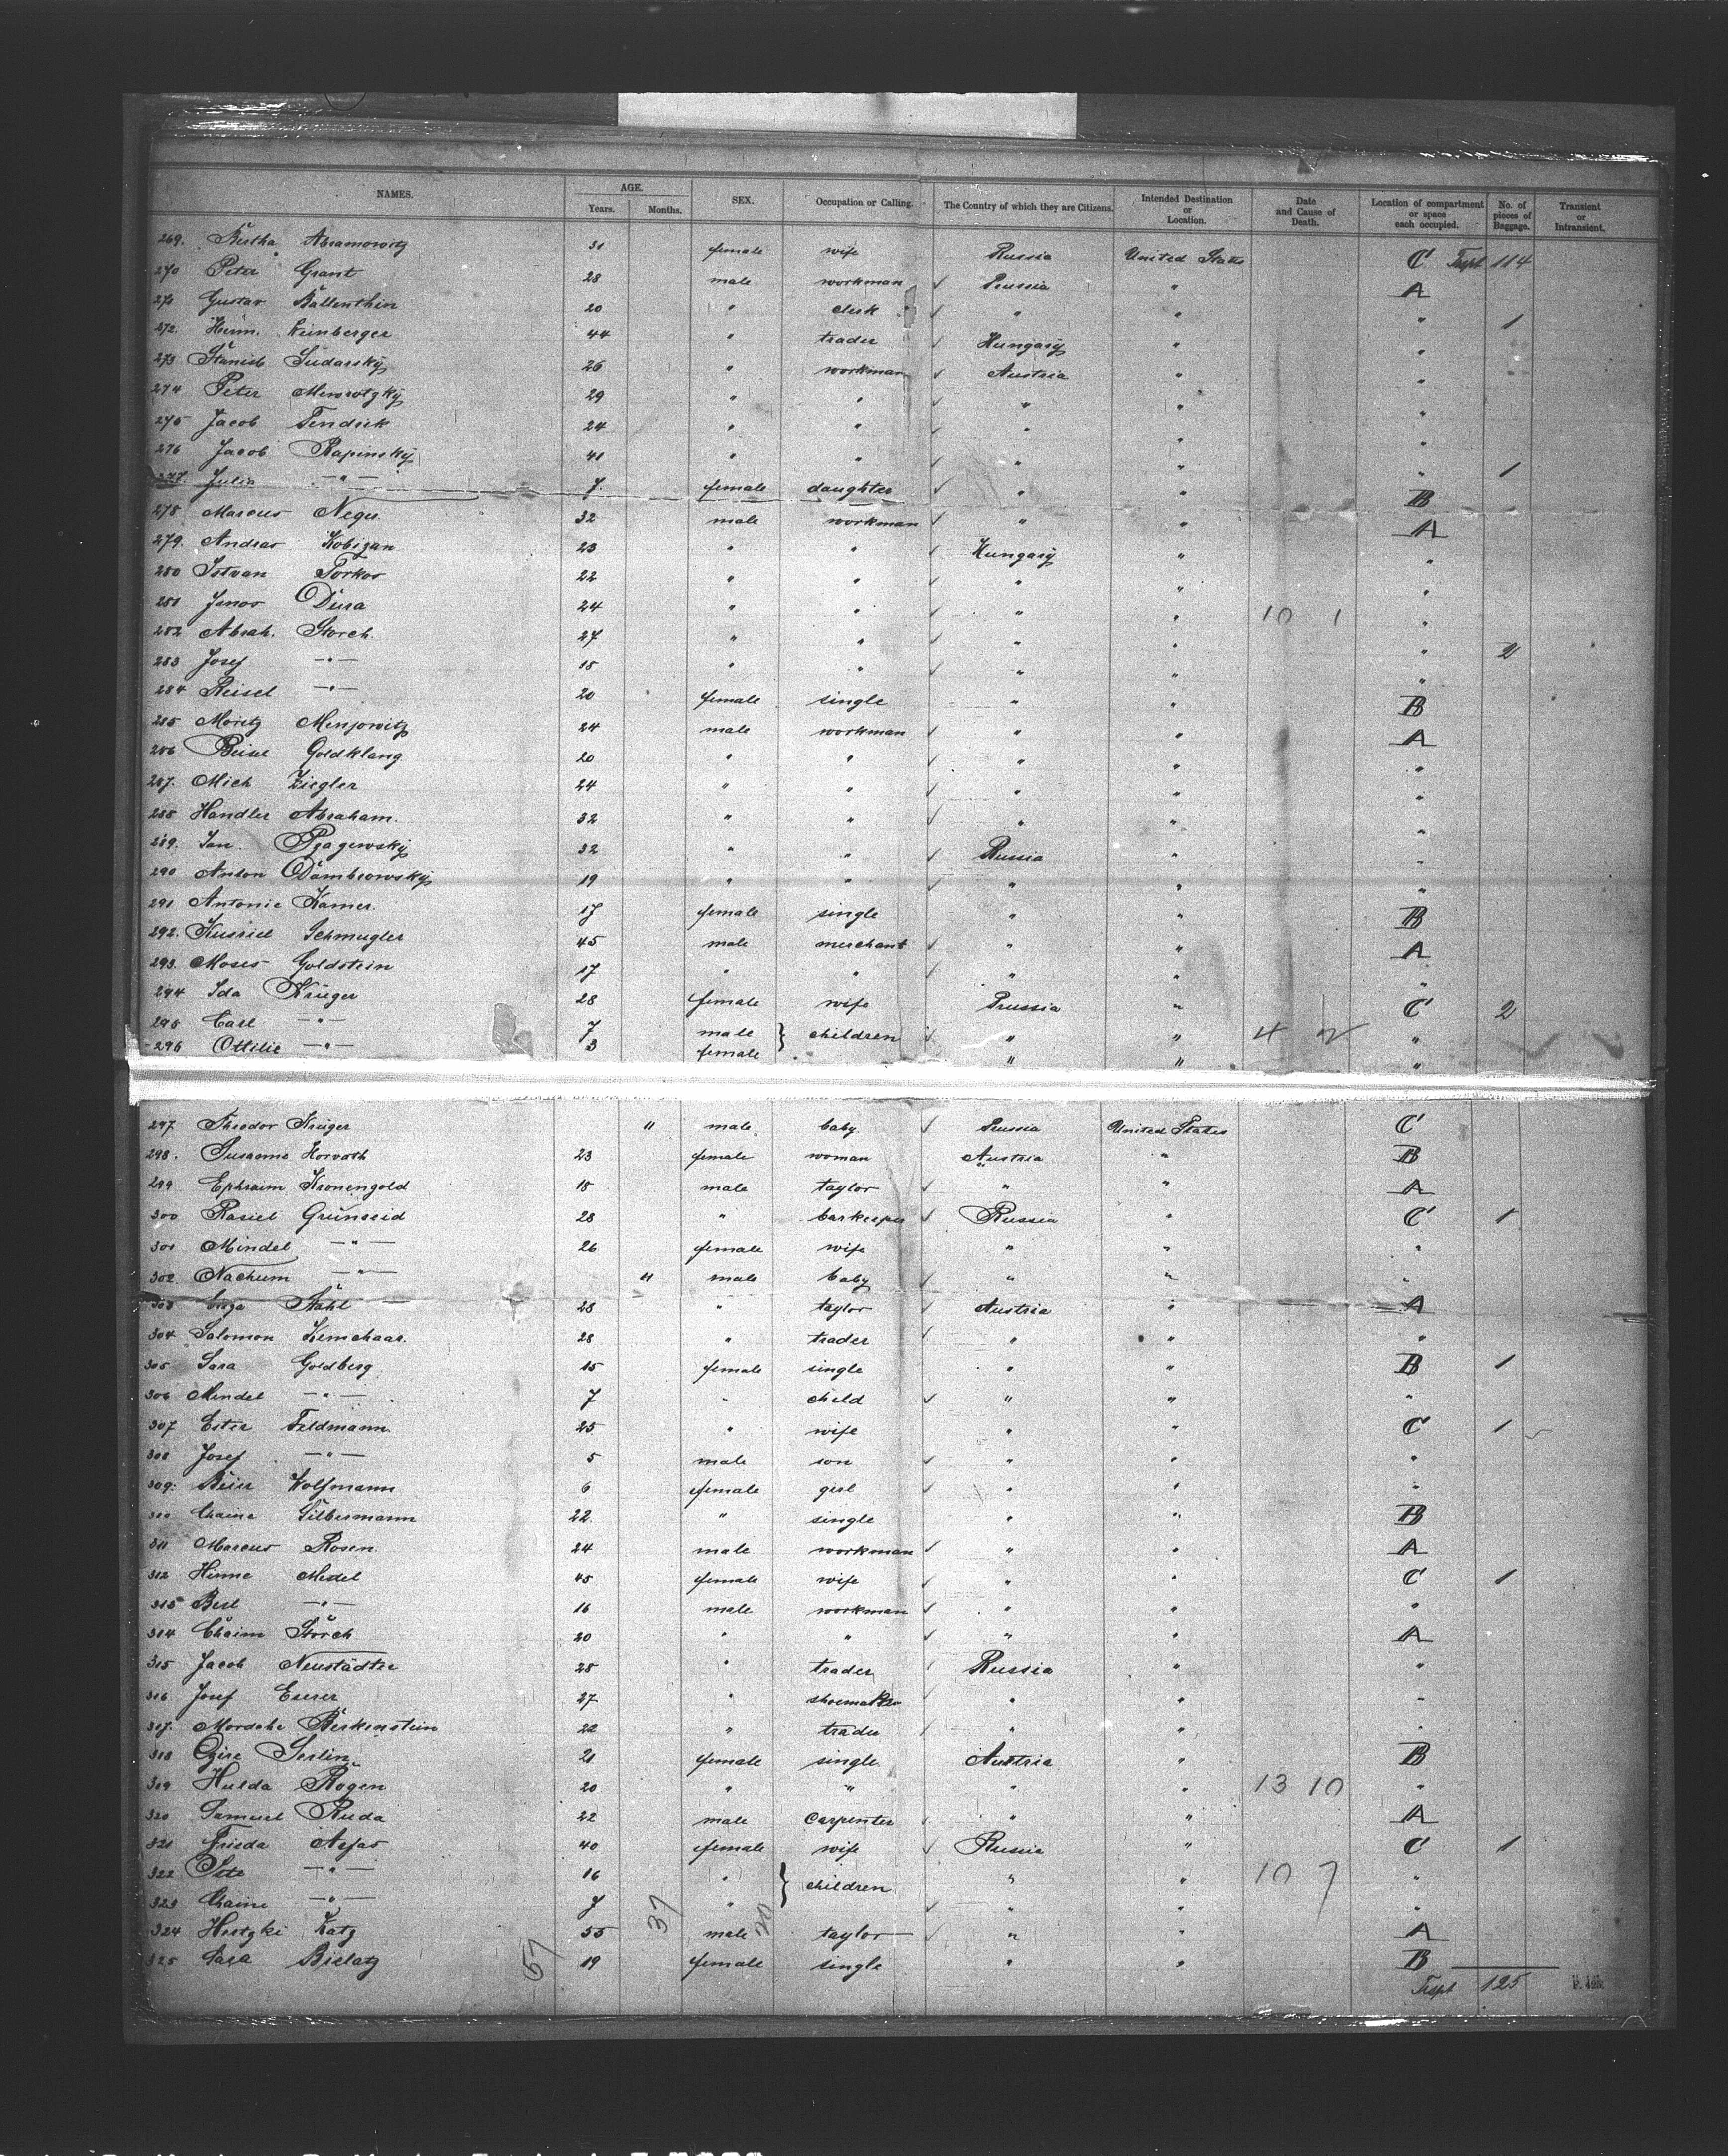 NAMES. AGE. Years. Months. SEX. Occupation or Calling. The Country of which they are Citizens. Intended Destination or Location. Date and Cause of Death. Location of compartment or space each occupied. No. of pieces of Baggage. Transient or Intransient.
269. Bertha Abramowitz 31 female wife Russia United States C Trspt 114
270 Peter Grant 28 male workman ✓ Prussia " A
271 Gustav Ballenthin 20 " clerk ✓ " " " 1
272. Herm. Weinberger 44 " trader ✓ Hungary " "
273 Stanisb Sudarsky 26 " workman ✓ Austria " "
274 Peter 29 " " ✓ " " "
275 Jacob Fendrik 24 " " ✓ " " "
276 Jacob Rapinsky 41 " " ✓ " " " 1
277. Julia —"— 7 female daughter ✓ " " B
278 Marcus Neger 32 male workman ✓ " " A
279. Andras Kobizan 23 " " ✓ Hungary " "
280 Istvan Torkos 22 " " ✓ " " "
281 Janos Dura 24 " " ✓ " " 10 1 "
282 Abrah. Storch. 27 " " ✓ " " " 2
283 Josef —"— 18 " " ✓ " " "
284 Reisel —"— 20 female single " " B
285 Moritz Menjowitz 24 male workman ✓ " " A
286 Beisel Goldklang 20 " " ✓ " " "
287. Mich Ziegler 24 " " ✓ " " "
288 Handler Abraham. 32 " " ✓ " " "
289. Jan. 32 " " ✓ Russia " "
290 Anton Dambrowsky 19 " " ✓ " " "
291 Antonie Kamer. 17 female single " " B
292. Kusriel Schmugler 45 male merchant ✓ " " A
293. Moses Goldstein 17 " " ✓ " " "
294 Ida Krüger 28 female wife Prussia " C 2
295 Carl —"— 7 male } children ✓ " " 4 2 "
296 Ottilie —"— 3 female " " "
297. Theodor Krüger 11 male. baby ✓ Prussia United States C
298. Susanne Horvath 23 female woman Austria " B
299 Ephraim Kronengold 18 male taylor ✓ " " A
300 Rasiel Grünseid 28 " barkeeper ✓ Russia " C 1
301 Mindel —"— 26 female wife " " "
302. Nachum —"— 11 male baby ✓ " " "
303 Stahl 28 " taylor ✓ Austria " A
304 Salomon Kemchaar. 28 " trader ✓ " " "
305 Sara Goldberg 15 female single " " B 1
306 Mendel —"— 7 " child ✓ " " "
307 Ester Feldmann. 25 " wife " " C 1
308 Josef —"— 5 male son ✓ " " "
309. Beile Wolfmann 6 female girl ✓ " " "
310 Chaine Silbermann 22. " single " " B
311 Marcus Rosen. 24 male workman ✓ " " A
312 Hinne Medel 45 female wife ✓ " " C 1
313 Berl —"— 16 male workman ✓ " " "
314 Chaim Storch 20 " " ✓ " " A
315 Jacob Neustädter 28 " trader ✓ Russia " "
316 Josef Eserer 27 " shoemaker ✓ " " "
317. Mordche Berkenstein 22 " trader ✓ " " "
318 Serlin. 21 female single. Austria " B
319 Hulda Rogen 20 " " " " 13 10 "
320 Samuel Ruda 22 male Carpenter ✓ " " A
321 Frieda Asfas 40 female wife ✓ Russia " C 1
322 —"— 16 " } children " " 10 7 "
323 Chaine —"— 7 " ✓ " " "
324 Katz 55 male taylor ✓ " " A
325 Sara Bielatz 19 female single " " B
57 37 20 Trspt 125